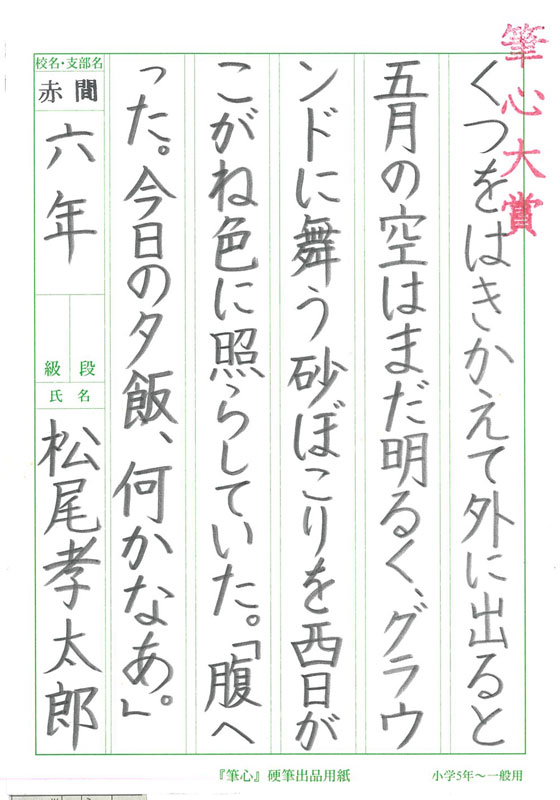 筆心大賞
くつをはきかえて外に出ると
五月の空はまだ明るく、グラウ
ンドに舞う砂ぼこりを西日が
こがね色に照らしていた。「腹へ
った。今日の夕飯、何かなあ。」
校名・支部名
赤間
六年
級 段
氏名
松尾孝太郎
『筆心』硬筆出品用紙
小学5年〜一般用